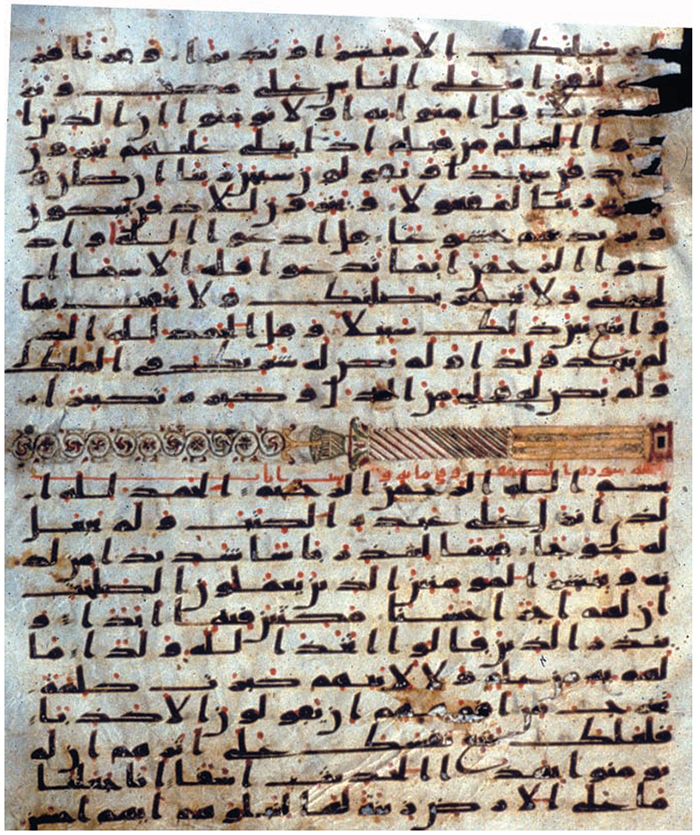 ارسلنك الا مبشرا ونذيرا وقرانا فر
لتقراه على الناس على مكث ونز
قل امنوا به او لا تومنوا ان الذين ا
وتوا العلم من قبله اذا يتلى عليهم يخرون
سجدا ويقولون سبحن ربنا ان كان و
عد ربنا لمفعولا ويخرون للاذقن يبكون
ويزيدهم خشوعا قل ادعوا الله او اد
عوا الرحمن ايا ما تدعوا فله الاسما ا
لحسنى ولا تجهر بصلتك ولا تخفت بها
وابتغ بين ذلك سبيلا وقل الحمد لله الذي
لم يتخذ ولدا ولم يكن له شريك في الملك
ولم يكن له ولي من الذل وكبره تكبيرا
سورة
بسم الله الرحمن الرحيم الحمد لله ا
لذي انزل على عبده الكتب ولم يجعل
له عوجا قيما لينذر باسا شديدا من لد
نه ويبشر المومنين الذين يعملون الصلحت
ان لهم اجرا حسنا مكثين فيه ابدا و
ينذر الذين قالوا اتخذ الله ولدا ما
لهم به من علم ولا لابايهم كبرت كلمة
تخرج من افوههم ان يقولون الا كذبا
فلعلك بخع نفسك على اثرهم ان لم
يومنوا بهذا الحديث اسفا انا جعلنا
ما على الارض زينة لها لنبلوهم ايهم احسن